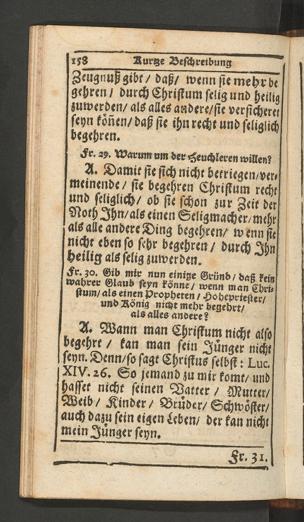 158 Kurtze Beschreibung
Zeugnuß gibt / daß / wenn sie mehr be
gehren / durch Christum selig und heilig
zuwerden / als alles andere / sie versicheret
seyn können / daß sie ihn recht und seliglich
begehren.
Fr. 29. Warum um der Heuchleren willen?
A. Damit sie sich nicht betriegen / ver-
meinende / sie begehren Christum recht
und seliglich / ob sie schon zur Zeit der
Noth Ihn / als einen Seligmacher / mehr
als alle andere Ding begehren / wenn sie
nicht eben so sehr begehren / durch Ihn
heilig als selig zuwerden.
Fr. 30. Gib mir nun einige Gründ / daß kein
wahrer Glaub seyn könne / wenn man Chri-
stum / als einen Propheten / Hohepriester /
und König nicht mehr begehrt /
als alles andere?
A. Wann man Christum nicht also
begehrt / kan man sein Jünger nicht
seyn. Denn / so sagt Christus selbst: Luc.
XIV. 26. So jemand zu mir komt / und
hasset nicht seinen Vatter / Mutter /
Weib / Kinder / Brüder / Schwöster /
auch dazu sein eigen Leben / der kan nicht
mein Jünger seyn.
Fr. 31.